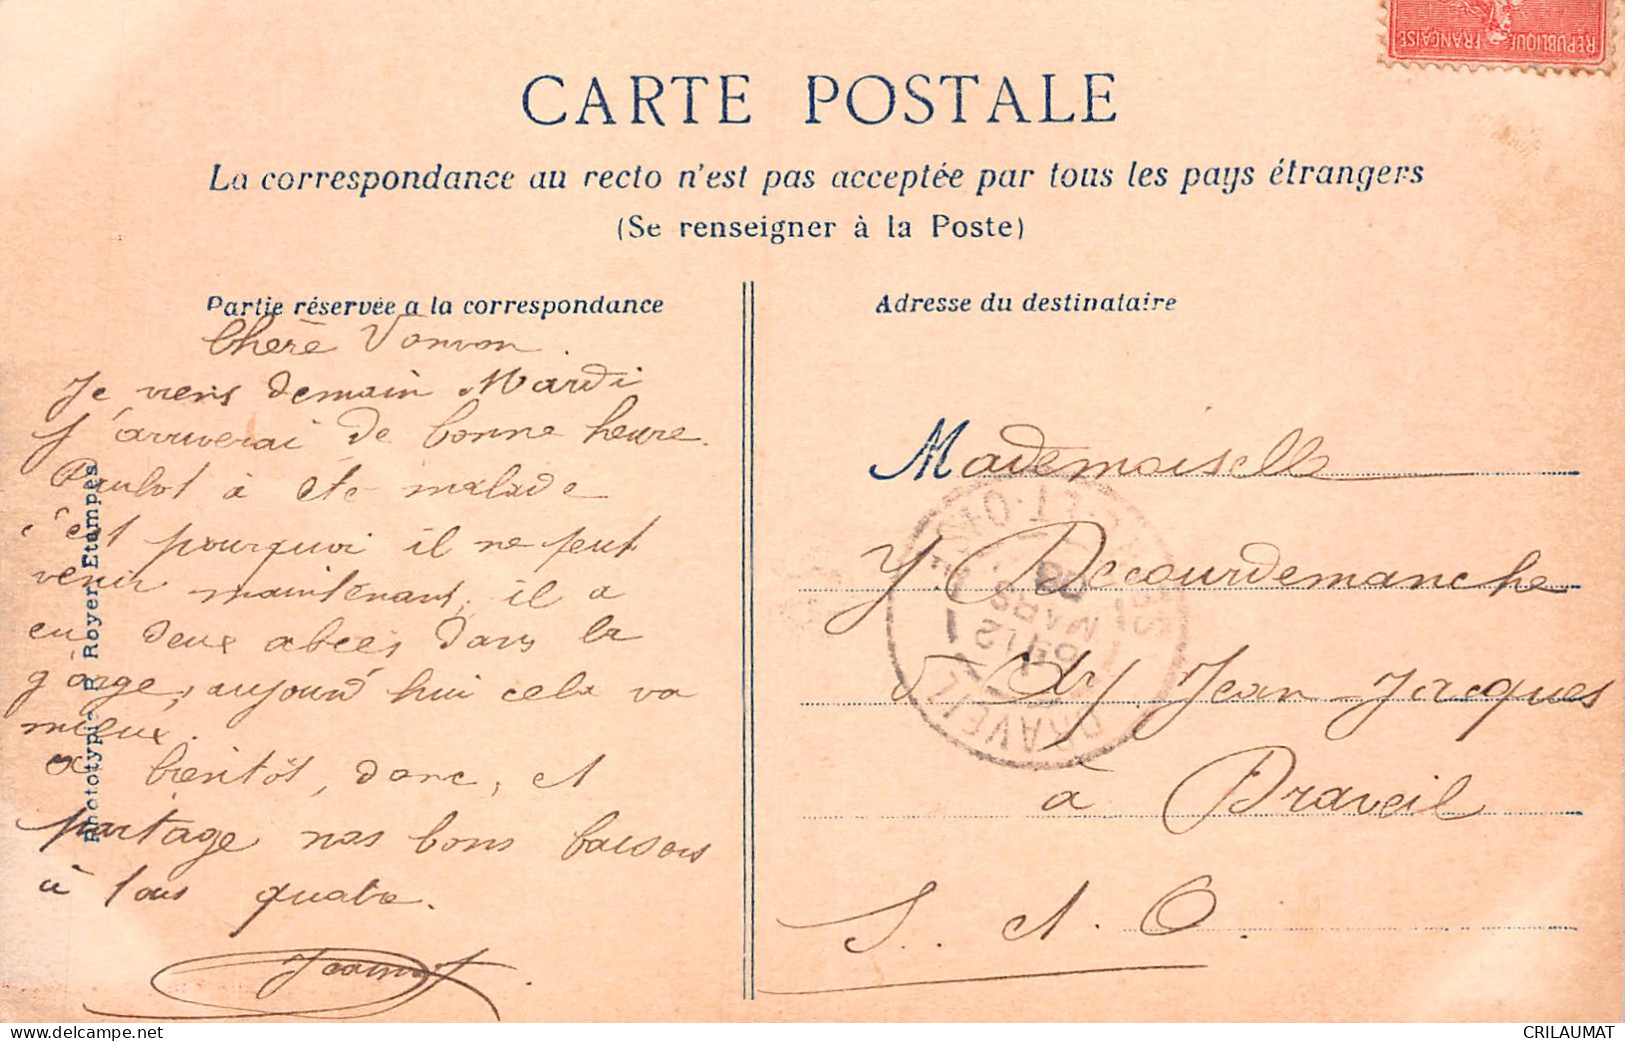 RÉPUBLIQUE FRANÇAISE
CARTE POSTALE
La correspondance au recto n'est pas acceptée par tous les pays étrangers
(Se renseigner à la Poste)
Partie réservée a la correspondance
Adresse du destinataire
Chère Vonvon.
Je viens demain Mardi
J'arriverai de bonne heure.
Paulot à été malade
c'est pourquoi il ne peut
venir maintenant, il a
eu deux abcès dans la
gorge, aujourd'hui cela va
mieux.
a bientôt, donc, et
partage nos bons baisers
à tous quatre.
Mademoiselle
Y. Decourdemanche
5 Jean-Jacques
à Draveil
S. et. O.
DRAVEIL
MARS
Phototypie P. Royer Etampes
www.delcampe.net
CRILAUMAT